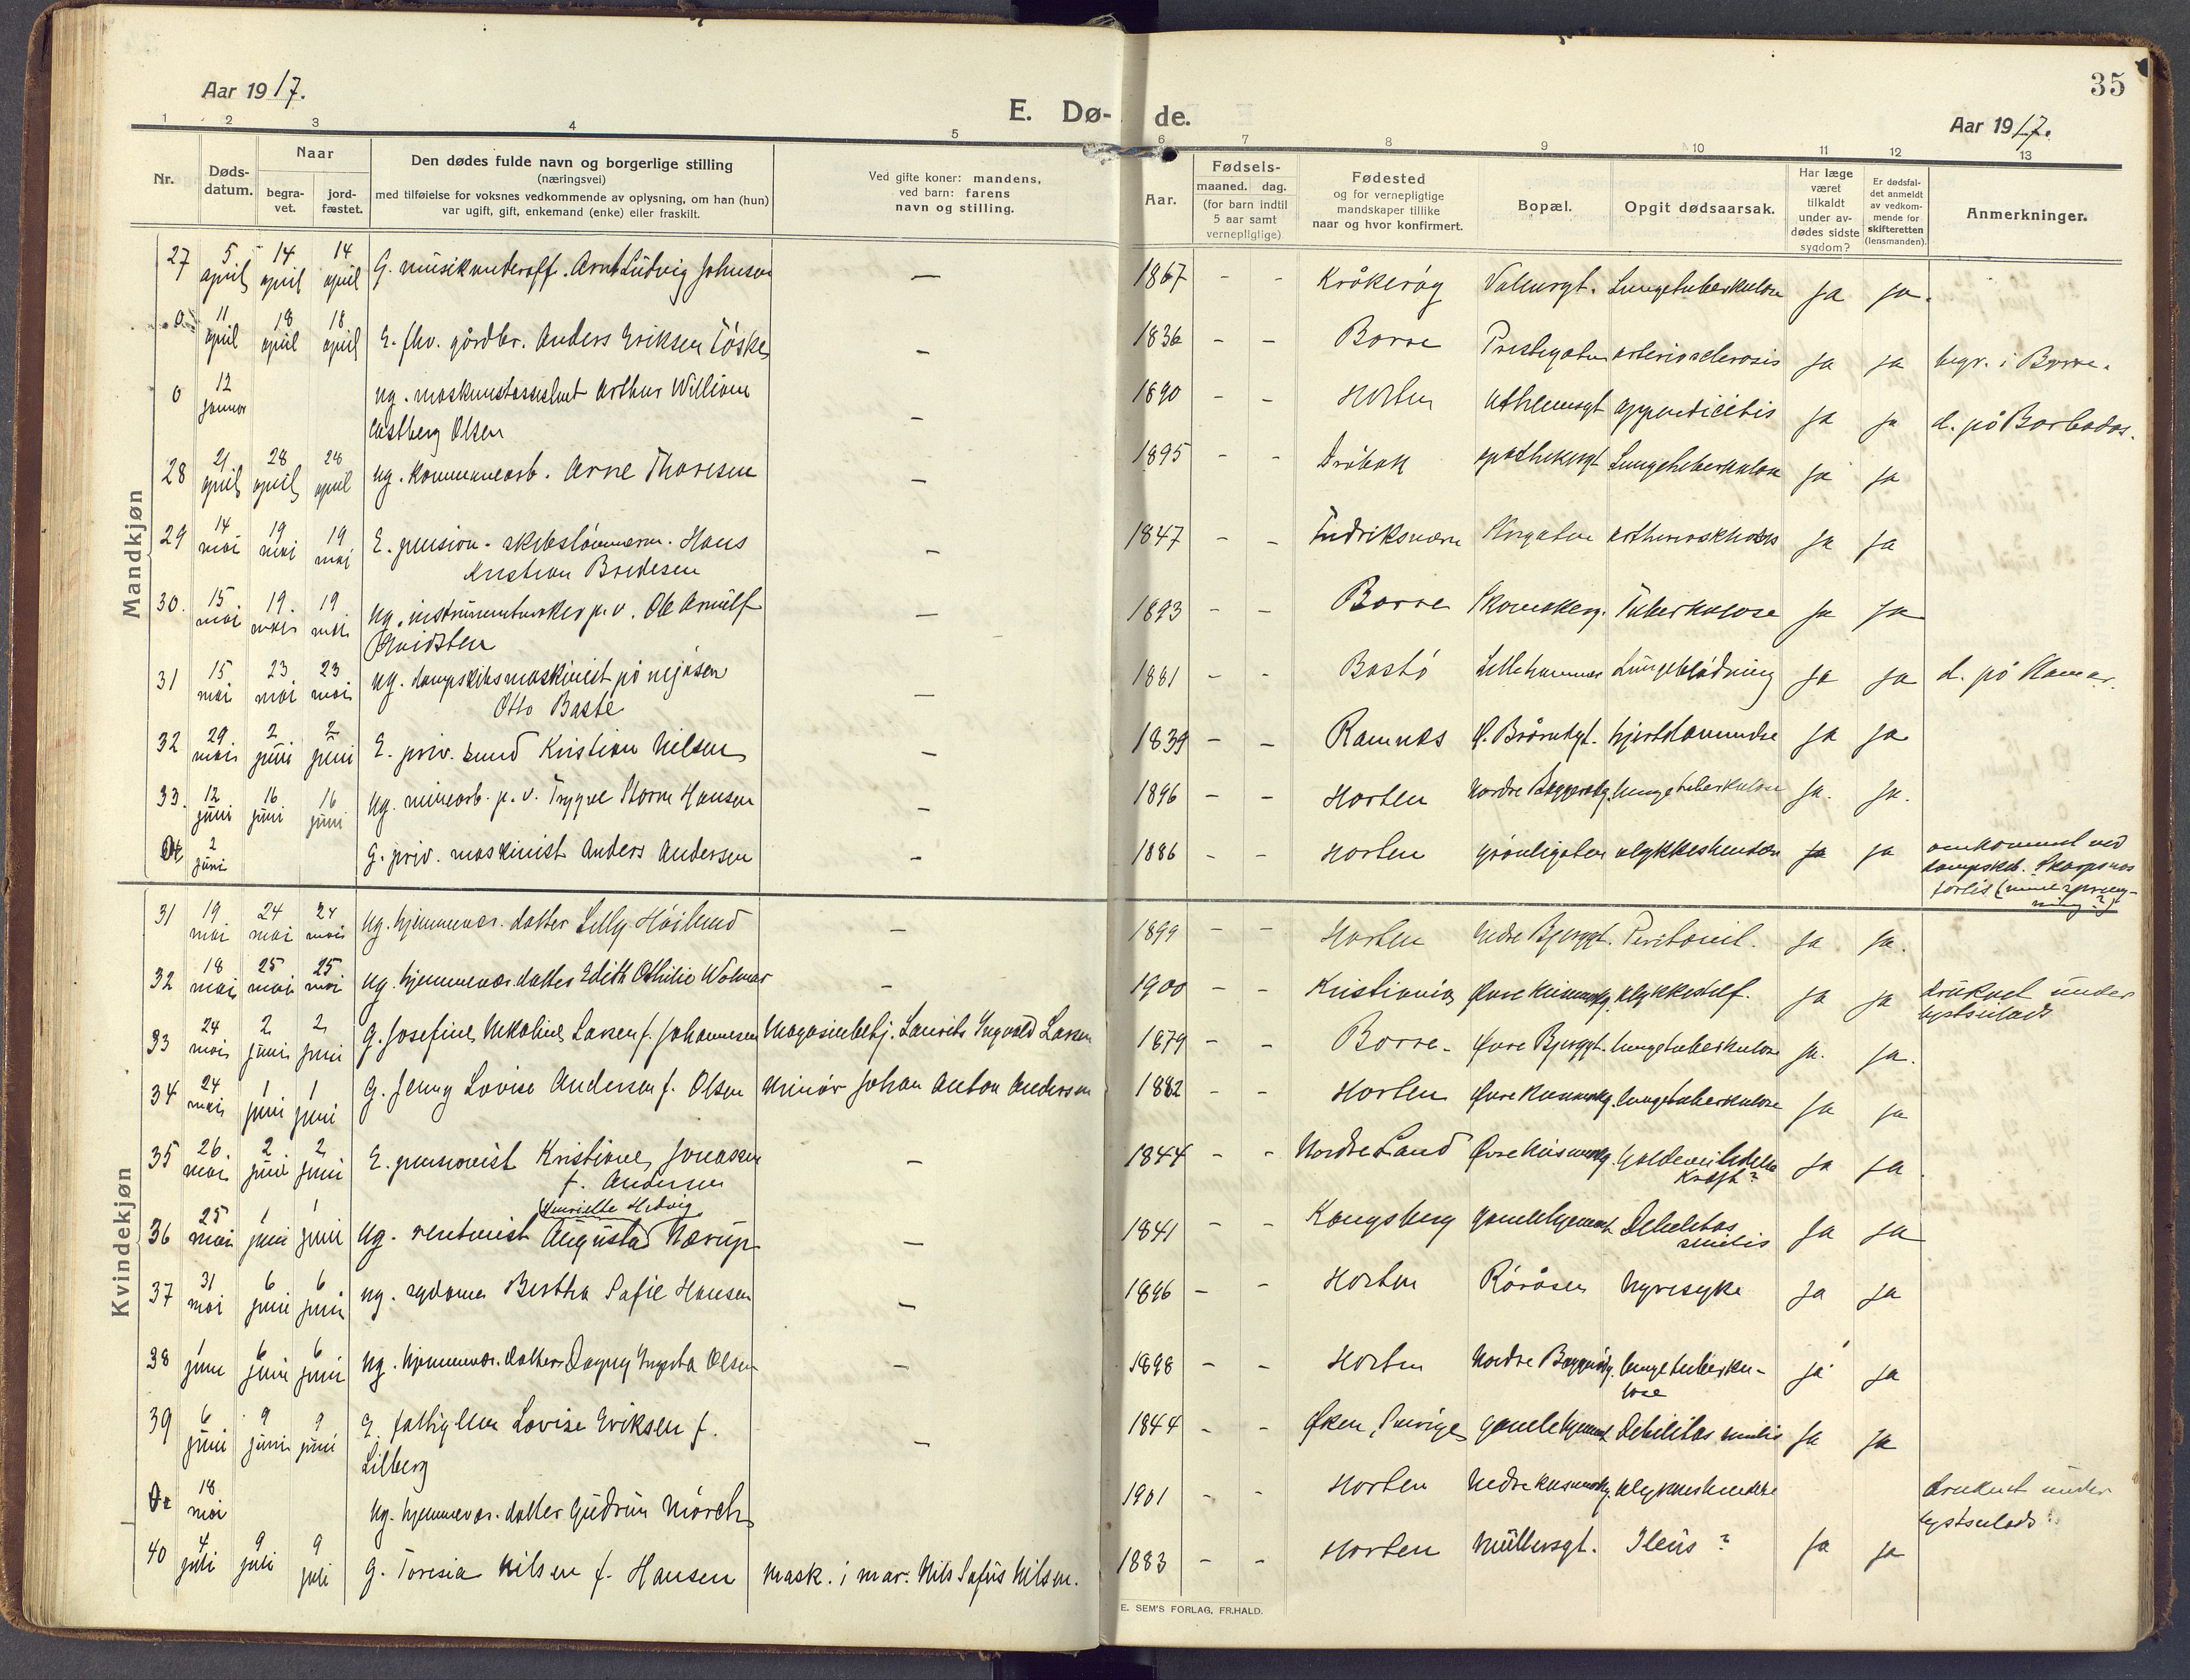 35
Aar 1917.
E. Dø- de.
Aar 1917.
1 2 3 4 5 6 7 8 9 10 11 12 13
Nr.
Døds-
datum.
Naar
begra-
vet.
jord-
fæstet.
Den dødes fulde navn og borgerlige stilling
(næringsvei)
med tilføielse for voksnes vedkommende av oplysning, om han (hun)
var ugift, gift, enkemand (enke) eller fraskilt.
Ved gifte koner: mandens,
ved barn: farens
navn og stilling.
Aar.
Fødsels-
maaned. dag.
(for barn indtil
5 aar samt
vernepligtige)
Fødested
og for vernepligtige
mandskaper tillike
naar og hvor konfirmert.
Bopæl.
Opgit dødsaarsak.
Har læge
været
tilkaldt
under av-
dødes sidste
sygdom?
Er dødsfal-
det anmeldt
av vedkom-
mende for
skifteretten
(lensmanden).
Anmerkninger.
Mandkjøn
27 5 april 14 april 14 april G. musikunderoff. Arnt Ludvig Johnsen — 1867 - - Kråkerøy Lungetuberkulose ja ja.
0 11 april 18 april 18 april E. fhv. gårdbr. Anders Eriksen — 1836 - - Borre Prestegaten arteriosclerosis ja ja begr. i Borre.
0 12 januar ug. maskinistassistent Arthur William — 1890 - - Horten appendicitis ja ja d. på Barbados.
Olsen
28 21 april 28 april 28 april ug. kommunearb. Arne Thoresen — 1895 - - Drøbak apothekergt Lungetuberkulose ja ja
29 14 mai 19 mai 19 mai E. pension. skibstømmerm. Hans — 1847 - - Fredriksværn Storgaten ja ja
Kristian Bredesen
30. 15. mai 19. mai 19. mai ug. instrumentmaker p.v. Ole Arnulf — 1893 - - Borre Tuberkulose ja ja
Qvidsten
31 15 mai 23 mai 23 mai ug. dampskibsmaskinist på mjøsen — 1881 - - Bastø Lillehammer Lungeblødning ja ja d. på Hamar.
Otto Bastø
32 29 mai 2 juni 2 juni E. priv. smed Kristian Nilsen — 1839 - - Ramnæs hjertelammelse ja ja
33. 12 juni 16 juni 16 juni ug. minearb. p.v. Trygve Storm Hansen — 1896 - - Horten lungetuberkulose ja. ja.
2 juni G. priv. maskinist Anders Andersen — 1886 - - Horten Grønligaten ulykkeshendelse ja ja omkommet ved
dampskib. Skarpsnos
forlis (minespræng-
ning?)
Kvindekjøn
31 19 mai 24 mai 24 mai ug. hjemmevær. datter Lilly Høilund — 1899 - - Horten Nedre Bjerggt. Peritonit. ja ja.
32 18 mai 25 mai 25 mai ug. hjemmevær. datter Edith Othilie Wolmar — 1900 - - Kristiania Øvre Keisemarkg. ulykkestilf. ja ja druknet under
lystseilads
33 24 mai 2 juni 2 juni G. Josefine Nikoline Larsen f. Johannesen Magasinbetj. Laurits Ingvald Larsen 1879 - - Borre Øvre Bjerggt. lungetuberkulose ja. ja.
34 24 mai 1 juni 1 juni G. Jenny Lovise Andersen f. Olsen Minør Johan Anton Andersen 1882 - - Horten Øvre Keisemarkg. lungetuberkulose ja ja
35 26. mai 2 juni 2 juni E. pensionist Kristiane Jonassen — 1844 - - Nordre Land Øvre Keisemarkg. ja ja.
f. Andersen kræft?
Henriette Hedvig
36 25 mai 1 juni 1 juni ug. rentenist Augusta Nærup — 1841 - - Kongsberg gamlehjemmet Debilitas ja ja
senilis
37 31 mai 6 juni 6 juni ug. sydame Bertha Sofie Hansen — 1896 - - Horten Røråsen Nyresyke ja ja
38 1 juni 6 juni 6 juni ug. hjemmevær. datter Dagny Ingerta Olsen — 1898 - - Horten lungetuberku-
lose ja ja
39 6 juni 9 juni 9 juni E. fattiglem Lovise Eriksen f. — 1844 - - Sverige gamlehjemmet Debilitas senilis ja ja
Lilberg
18 mai ug. hjemmevær. datter Gudrun Mørch 1901 - - Horten Nedre Keisemarkg. ulykkeshendelse druknet under
lystseilads.
40 4 juli 9 juli 9 juli G. Toresia Nilsen f. Hansen Mask. i mar. Nils Safus Nilsen. 1883 - - Horten Müllersgt. Ileus? ja ja
E. SEM'S FORLAG, FR.HALD.